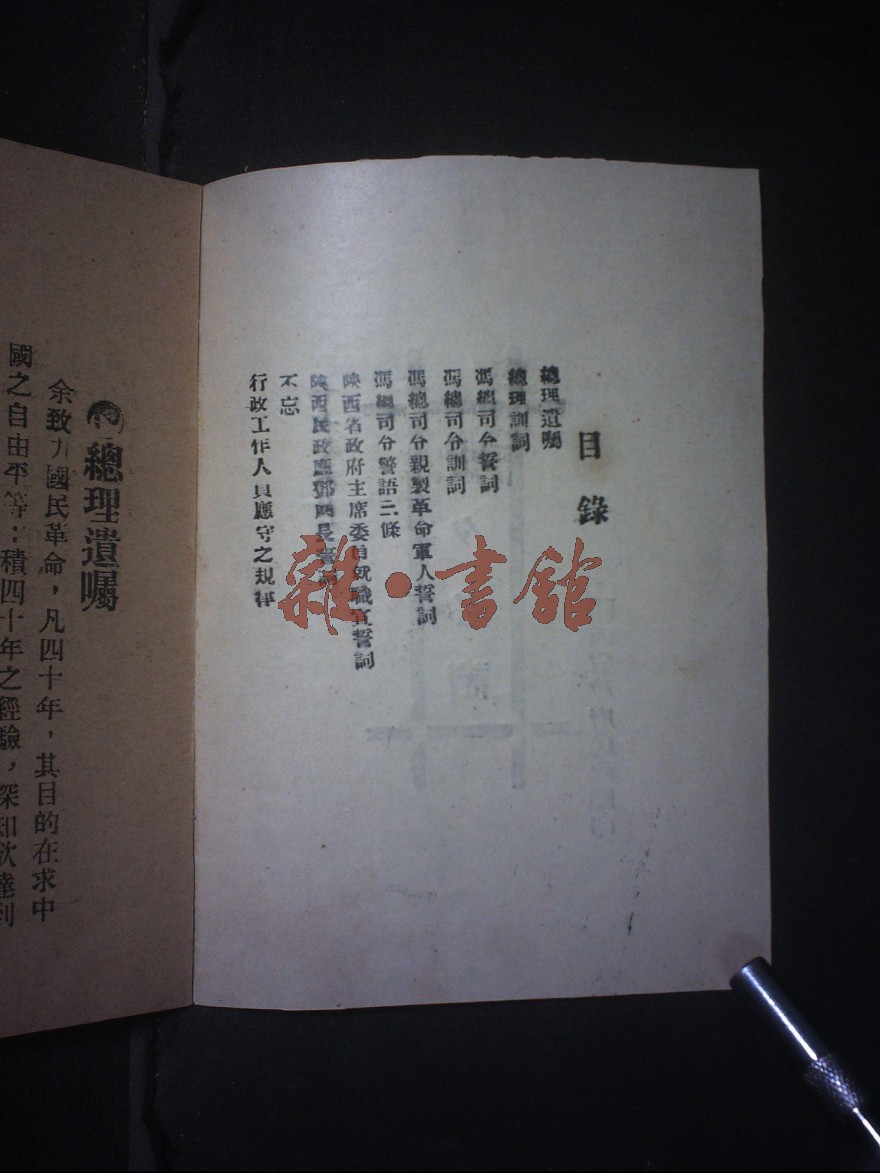 目錄
總理遺囑
總理訓詞
馮總司令誓詞
馮總司令訓詞
馮總司令親製革命軍人誓詞
馮總司令警語三條
陝西省政府主席委員就職宣誓詞
陝西民政廳鄧廳長
不忘
行政工作人員應守之規律
雜·書舘
總理遺囑
余致力國民革命，凡四十年，其目的在求中
國之自由平等：積四十年之經驗，深知欲達到